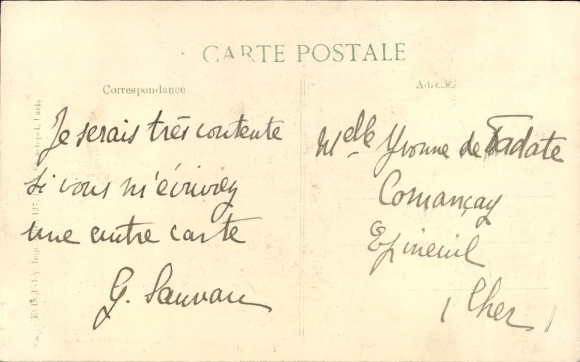 CARTE POSTALE
Correspondance
Adresse
Je serais très contente
si vous m'écriviez
une autre carte
G. Sauvan
Melle Yvonne de Tadate
Comançay
Epineuil
Cher